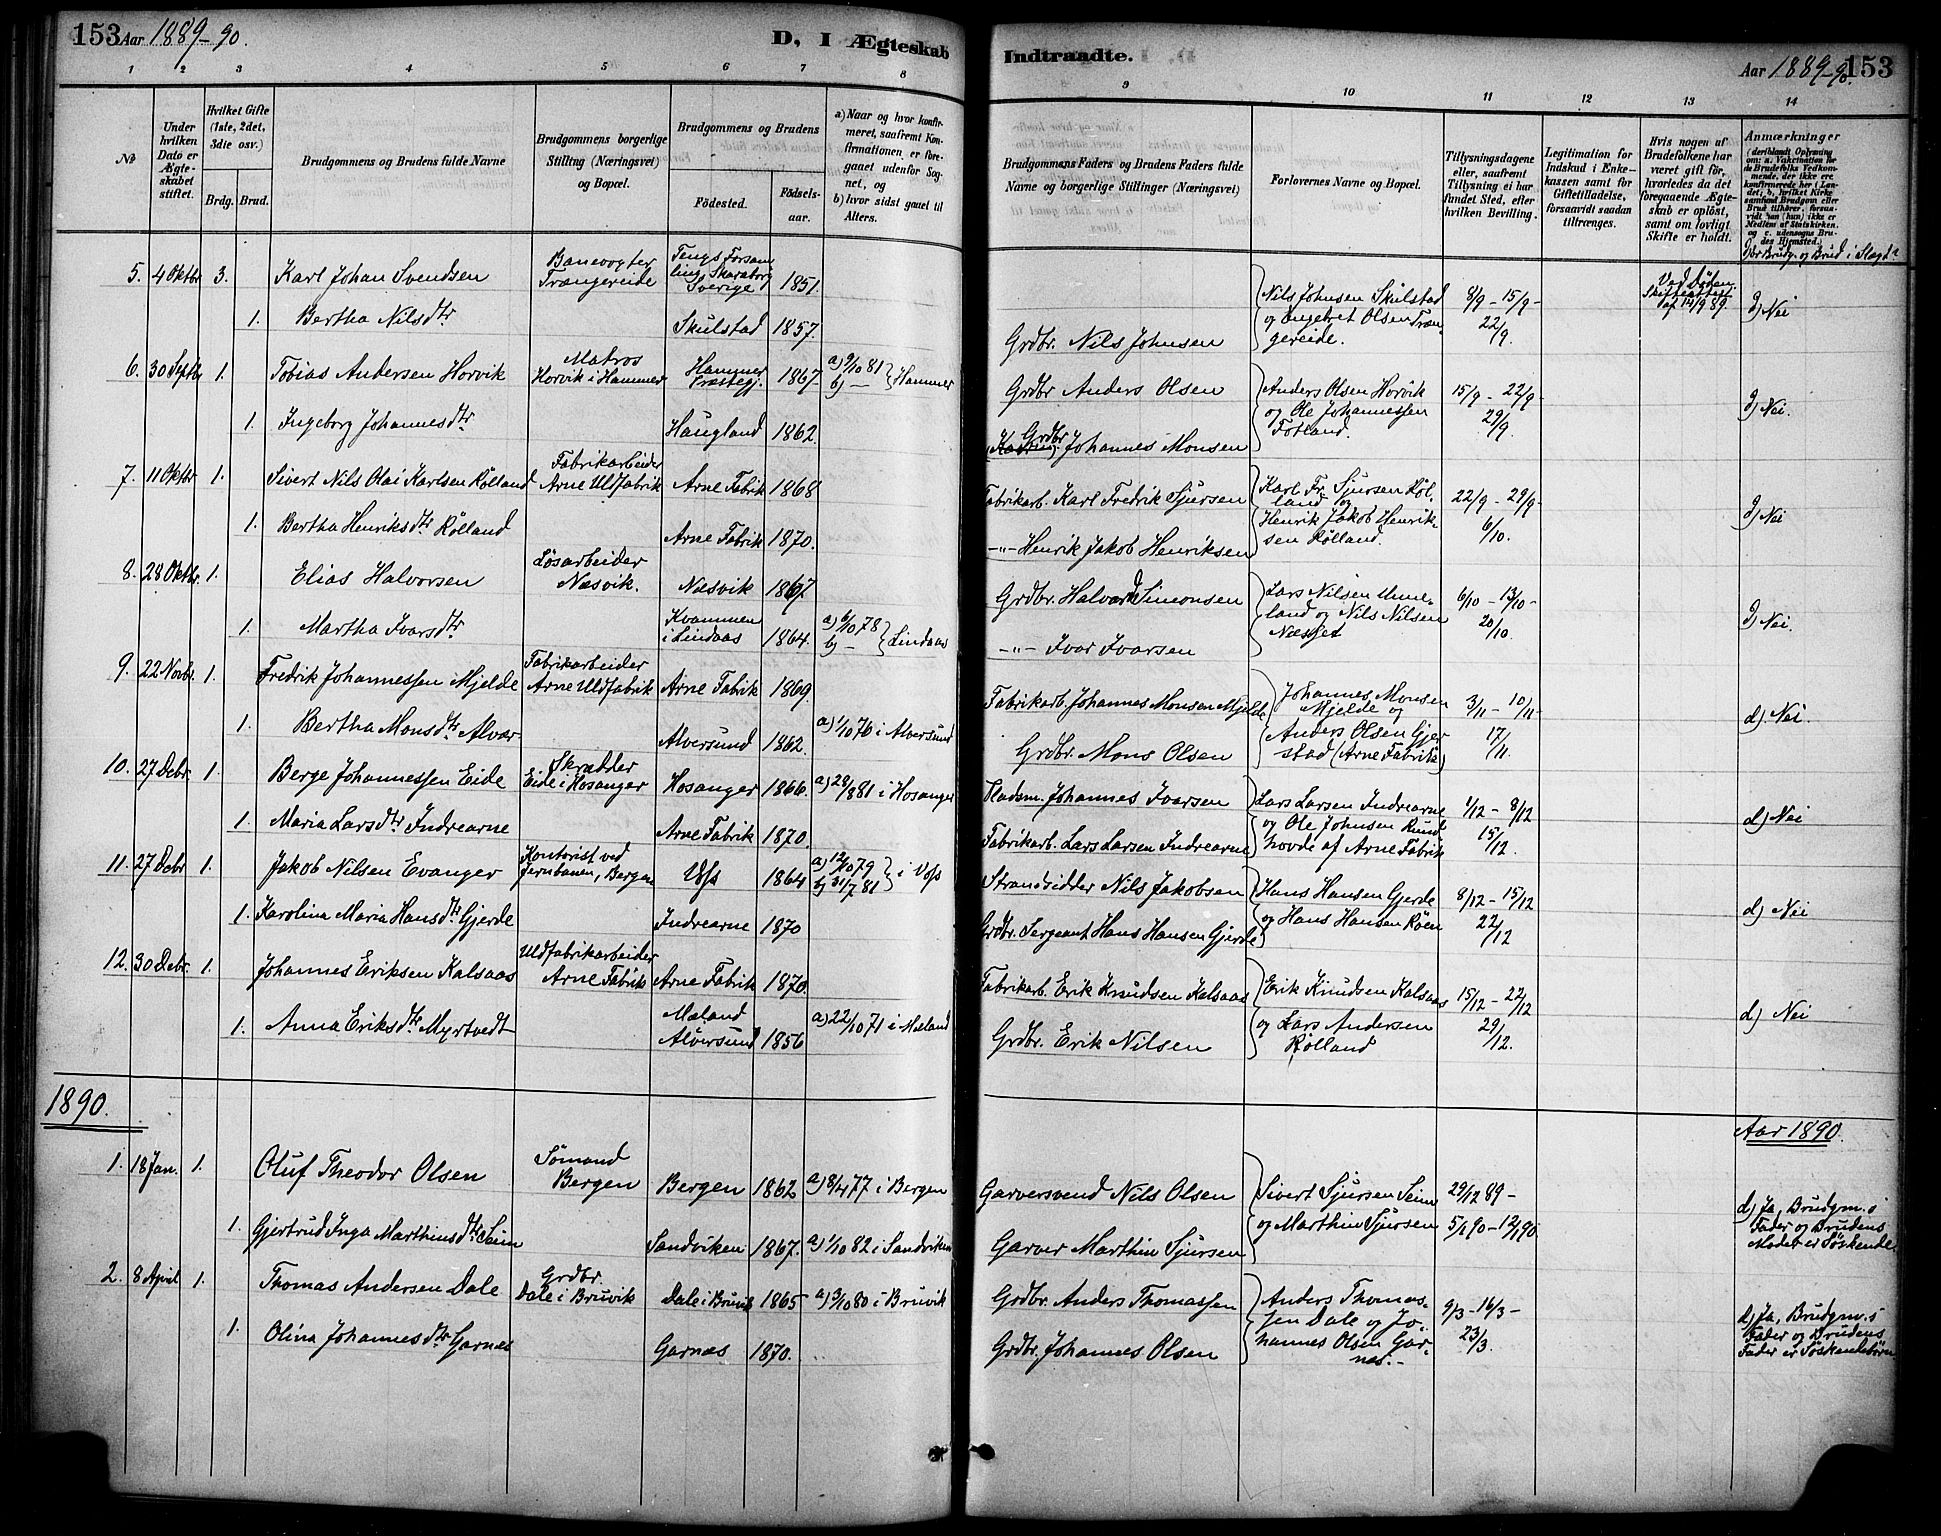 153 Aar 1889-90.
D, I Ægteskab
Indtraadte.
Aar 1889-90. 153
1 2 3 4 5 6 7 8
9 10 11 12 13 14
No
Under hvilken Dato er Ægteskabet stiftet.
Hvilket Gifte (1ste, 2det, 3die osv.)
Brdg. Brud.
Brudgommens og Brudens fulde Navne
Brudgommens borgerlige Stilling (Næringsvei) og Bopæl.
Brudgommens og Brudens
Fødested. Fødselsaar.
a) Naar og hvor konfirmeret, saafremt Konfirmationen er foregaaet udenfor Sognet, og
b) hvor sidst gaaet til Alters.
Brudgommens Faders og Brudens Faders fulde Navne og borgerlige Stillinger (Næringsvei)
Forlovernes Navne og Bopæl.
Tillysningsdagene eller, saafremt Tillysning ei har fundet Sted, efter hvilken Bevilling.
Legitimation for Indskud i Enkekassen samt for Giftetilladelse, forsaavidt saadan tiltrænges.
Hvis nogen af Brudefolkene har været gift før, hvorledes da det foregaaende Ægteskab er opløst, samt om lovligt Skifte er holdt.
Anmærkninger
(deriblandt Oplysning om: a. Vakcination for de Brudefolks Vedkommende, der ikke ere konfirmerede her i Landet; b. hvilket Kirkesamfund Brudgom eller Brud tilhører, forsaavidt han (hun) ikke er Medlem af Statskirken, og c. udensogns Brudes Hjemsted.
Er Brudg. og Brud i Slægt?
5. 4 Oktbr 3. Karl Johan Svendsen Banevogter Trængereide Tengs Forsamling Skaraborg Sverige 1851.
Nils Johnsen Skulstad og Engebret Olsen Trængereide. 8/9 - 15/9 - 22/9. Ved Døden Skifteattest af 14/9 89. d) Nei
1. Bertha Nilsdtr Skulstad 1857. Grdbr. Nils Johnsen
6. 30 Septbr 1. Tobias Andersen Horvik Matros Horvik i Hammer Hammer Præstegj. 1867 a) 9/10 81 b) - } Hammer
Grdbr Anders Olsen Anders Olsen Horvik og Ole Johannessen Fotland. 15/9 - 22/9 - 29/9. d) Nei.
1. Ingeborg Johannesdtr Haugland 1862. Grdbr Johannes Monsen
7. 11 Oktbr 1. Sivert Nils Olai Karlsen Rølland Fabrikarbeider Arne Uldfabrik Arne Fabrik 1868
Fabrikarb. Karl Fredrik Sjursen Karl Fr. Sjursen Rølland og Henrik Jakob Henriksen Rølland. 22/9 - 29/9 - 6/10. d) Nei
1. Bertha Henriksdtr Rølland Arne Fabrik 1870. -"- Henrik Jakob Henriksen
8. 28 Oktbr. 1. Elias Halvorsen Løsarbeider Næsvik. Næsvik 1867.
Grdbr. Halvard Simonsen Lars Nilsen Unneland og Nils Nilsen Næsset 6/10 - 13/10 - 20/10. d) Nei.
1. Martha Ivarsdtr Kvammen i Lindaas 1864. a) 6/10 78 b) - } Lindaas
-"- Ivar Ivarsen
9. 22 Novbr. 1. Fredrik Johannessen Mjelde Fabrikarbeider Arne Uldfabrik Arne Fabrik 1869.
Fabrikarb. Johannes Monsen Mjelde Johannes Monsen Mjelde og Anders Olsen Gjerstad (Arne Fabrik) 3/11 - 10/11 - 17/11. d) Nei.
1. Bertha Monsdtr Alvær Alversund 1862. a) 1/10 76 i Alversund
Grdbr. Mons Olsen
10. 27 Debr. 1. Berge Johannessen Eide Skrædder Eide i Hosanger Hosanger 1866. a) 28/8 81 i Hosanger
Pladsm. Johannes Ivarsen Lars Larsen Indrearne og Ole Johnsen Rundhovde af Arne Fabrik 1/12 - 8/12 15/12. d) Nei
1. Maria Larsdtr Indrearne Arne Fabrik 1870. Fabrikarb. Lars Larsen Indrearne
11. 27 Debr 1. Jakob Nilsen Evanger Kontorist ved Jernbanen, Bergen Voss 1864 a) 12/10 79 b) 31/7 81 } i Voss
Strandsidder Nils Jakobsen Hans Hansen Gjerde og Hans Hansen Røen 8/12 - 15/12 22/12 d) Nei
1. Karolina Maria Hansdtr Gjerde Indrearne 1870 Grdbr. Sergeant Hans Hansen Gjerde
12. 30 Debr. 1. Johannes Eriksen Kalsaas Uldfabrikarbeider Arne Fabrik Arne Fabrik 1870.
Fabrikarb. Erik Knudsen Kalsaas Erik Knudsen Kalsaas og Lars Andersen Rølland 15/12 - 22/12 29/12. d) Nei
1. Anna Eriksdtr Myrtvedt Mæland Alversund 1856 a) 22/10 71 i Mæland
Grdbr. Erik Nilsen
1890.
Aar 1890.
1. 18 Jan. 1. Oluf Theodor Olsen Sømand Bergen Bergen 1862 a) 8/4 77 i Bergen
Garversvend Nils Olsen Sivert Sjursen Seim og Marthin Sjursen 29/12 89 - 5/1 90 - 12/1 90. d) Ja, Brudgm.s Fader og Brudens Moder er Søskende.
1. Gjertrud Inga Marthinsdtr Seim Sandviken 1867. a) 1/10 82 i Sandviken
Garver Marthin Sjursen
2. 8 April 1. Thomas Andersen Dale Grdbr. Dale i Bruvik Dale i Bruvik 1865 a) 3/10 80 i Bruvik
Grdbr. Anders Thomassen Anders Thomassen Dale og Johannes Olsen Garnes. - 9/3 - 16/3 - 23/3. d) Ja, Brudgm.s Fader og Brudens Fader er Søskendebørn
1. Olina Johannesdtr Garnæs Garnæs 1870. Grdbr. Johannes Olsen